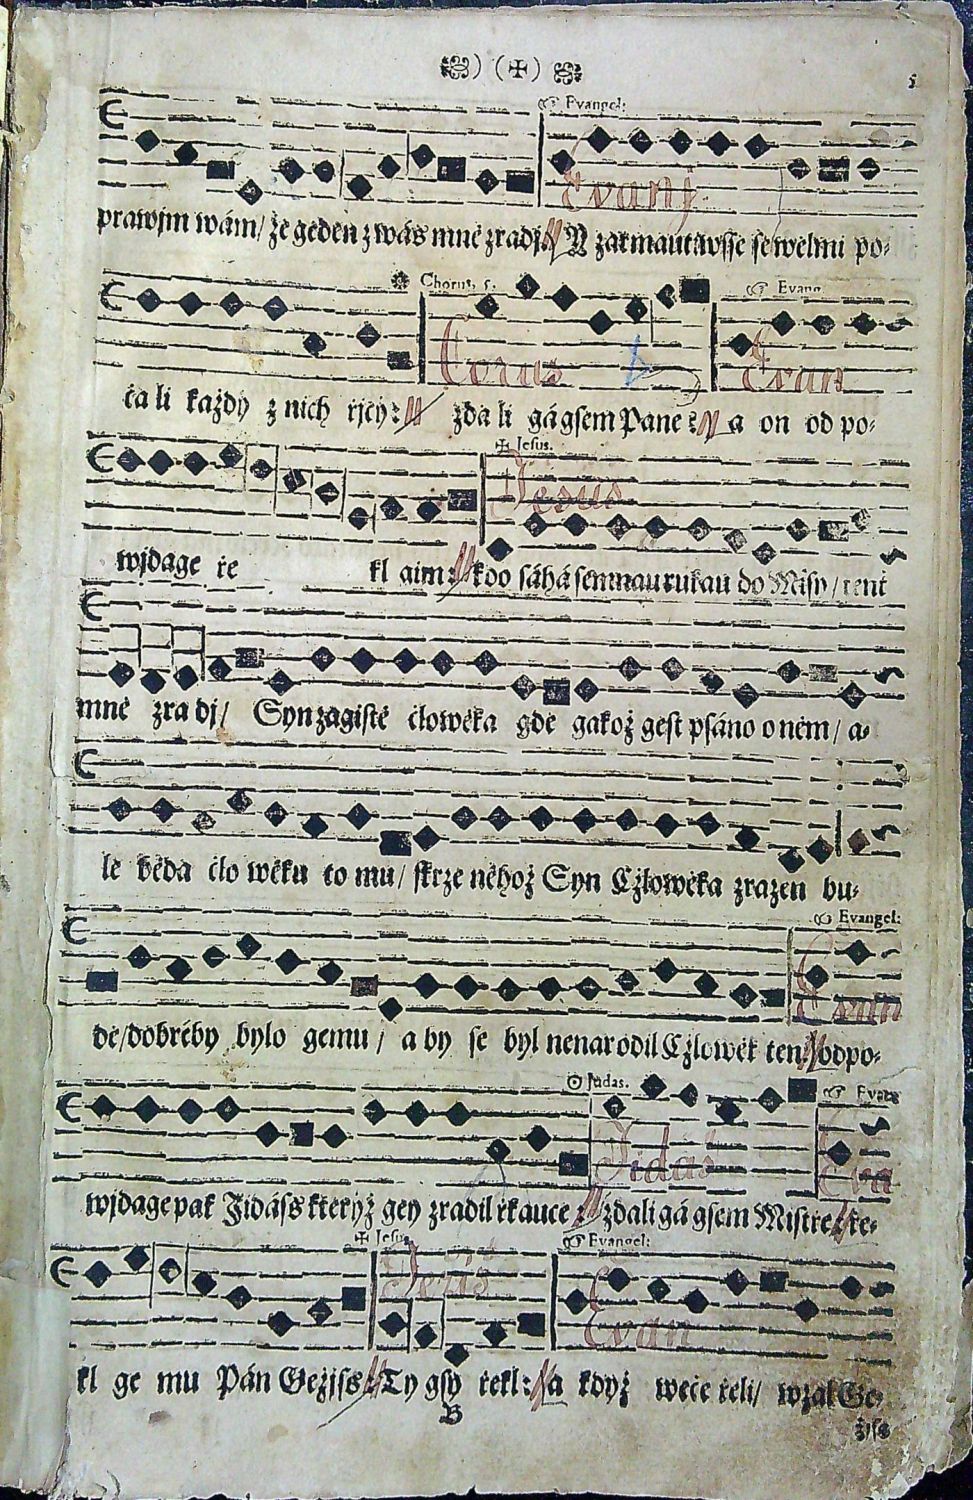 (✠) 5
Evangel:
Evanj.
prawjm wám/ že geden z wás mně zradj// Y zarmautiwsse se welmi po-
Chorus. 5. Evang
Corus Evan
čali každý z nich řjcy:// zdali gá gsem Pane:// a on odpo-
✠ Jesus.
Jesus
wjdage řekl aim:// kdo sáhá semnau rukau do Mísy/ tenť
mně zradj/ Syn zagisté člowěka gde gakož gest psáno o něm/ a-
le běda člowěku tomu/ skrze něhož Syn Cžlowěka zrazen bu-
Evangel:
Evan
de/ dobréby bylo gemu/ aby se byl nenarodil Cžlowěk ten:// odpo-
Judas. Evang
Jidas Eva
wjdage pak Jidáss kterýž gey zradil řkauce:// zdali gá gsem Mistře// ře-
✠ Jesus. Evangel:
Jesus Evan
kl gemu Pán Gežjss// Ty gsy řekl:// a když wečeřeli/ wzal Ge-
B žjss